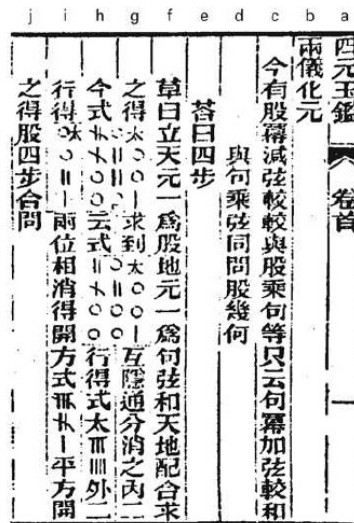 a b c d e f g h i j
四元玉鑑 卷首 一
兩儀化元
今有股冪減弦較較與股乘句等只云句冪加弦較和
與句乘弦同問股幾何
荅曰四步
草曰立天元一爲股地元一爲句弦和天地配合求
之得 求到 互隱通分消之內二
今式 云式 行得式太 外二
行得 兩位相消得開方式 平方開
之得股四步合問